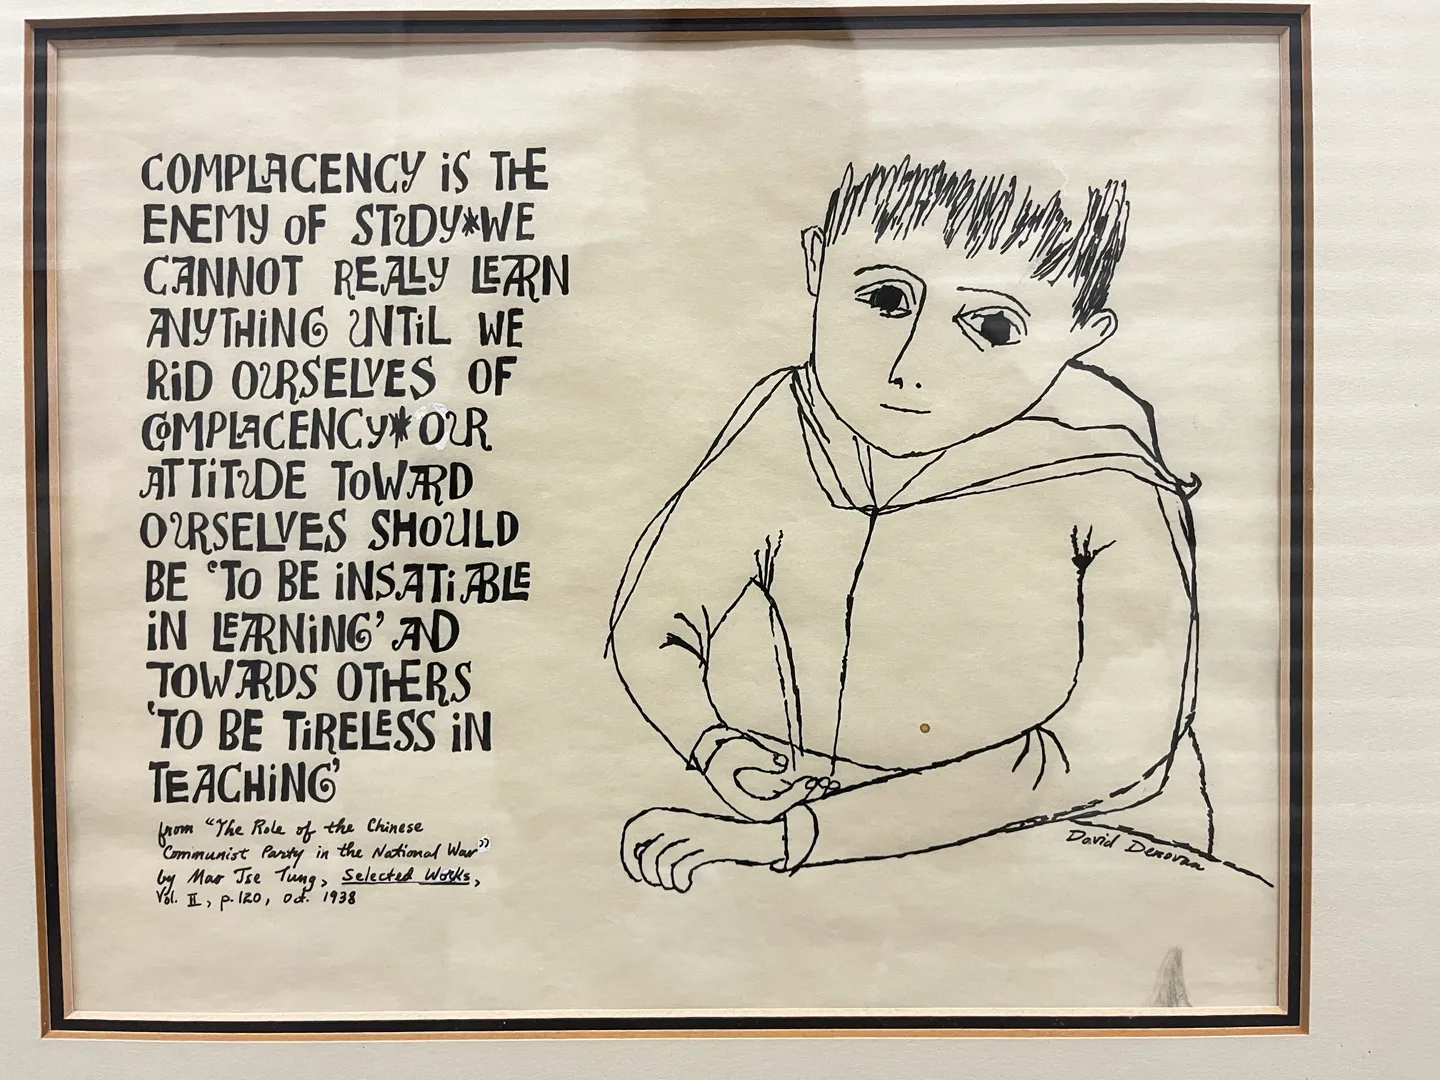 COMPLACENCY iS THE
ENEMY OF STUDY*WE
CANNOT REALLY LEARN
ANYTHiNG UNTiL WE
RiD OURSELVES OF
COMPLACENCY*OUR
ATTiTUDE TOWARD
OURSELVES SHOULD
BE 'TO BE iNSATiABLE
iN LEARNiNG' AND
TOWARDS OTHERS
'TO BE TiRELESS iN
TEACHiNG'
from "The Role of the Chinese
Communist Party in the National War"
by Mao Tse Tung, Selected Works,
Vol. II, p. 120, Oct. 1938
David Denovan